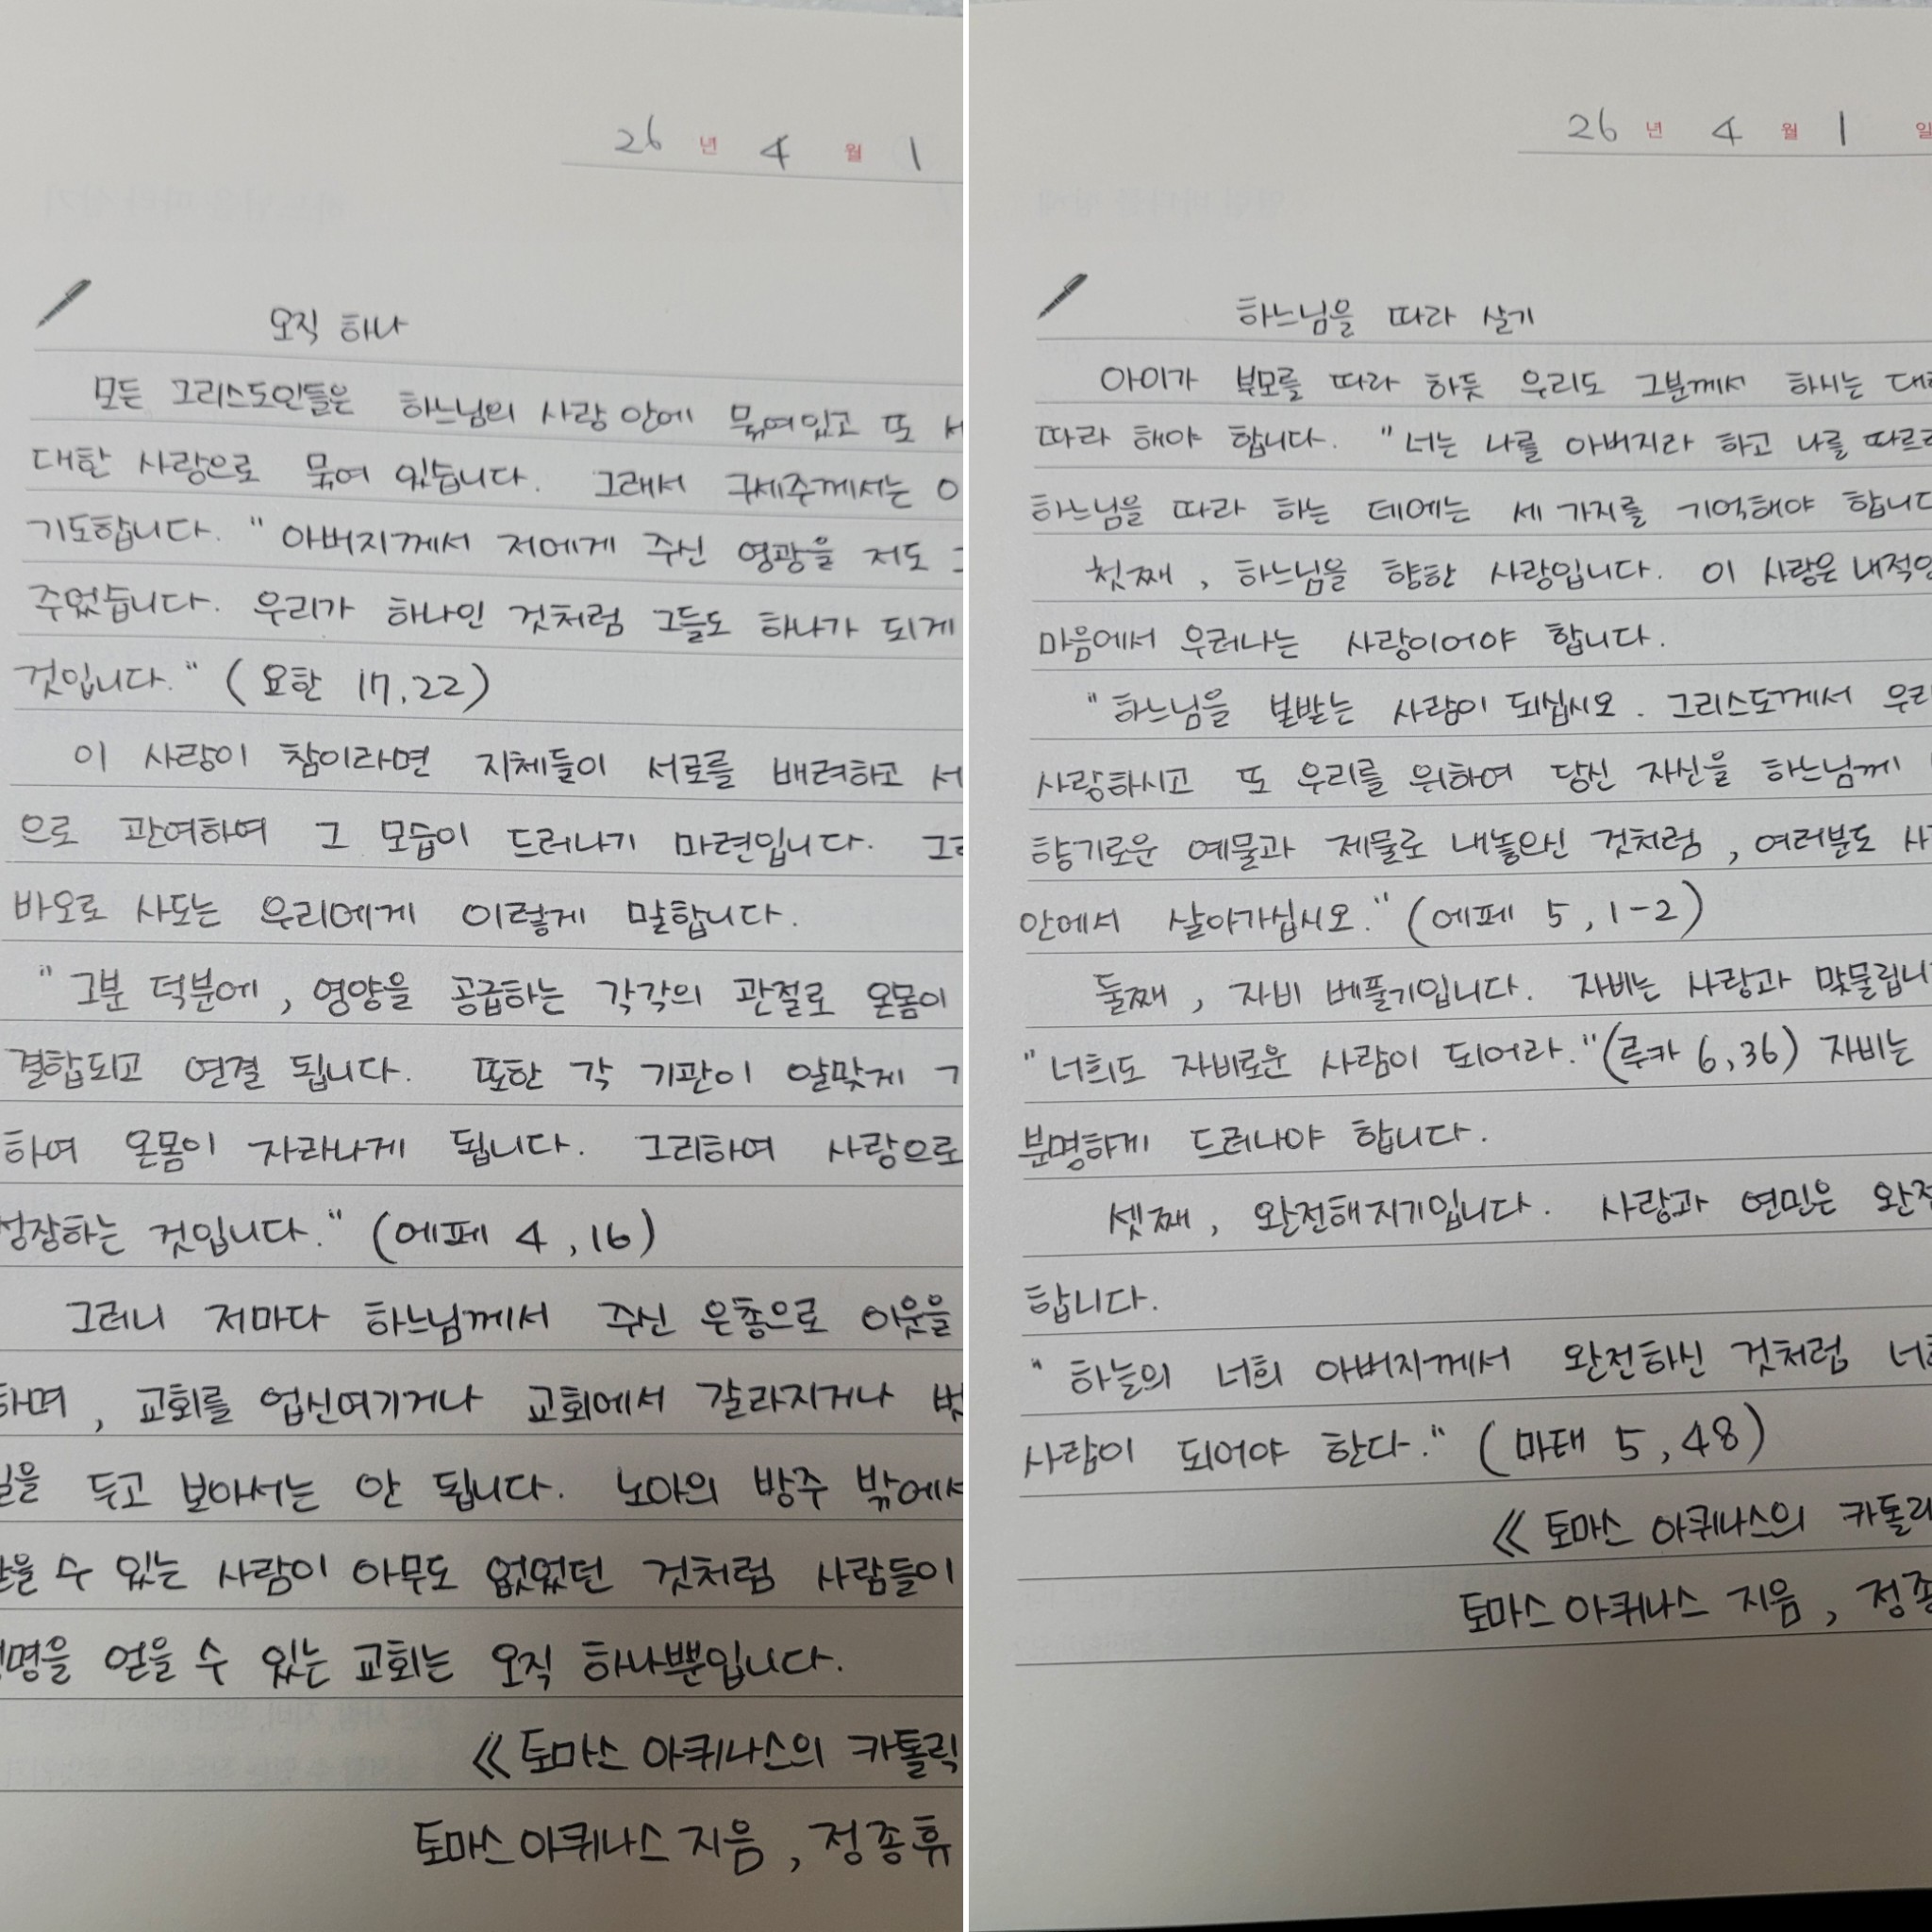 26 년 4 월 1
오직 하나
모든 그리스도인들은 하느님의 사랑 안에 묶여있고 또
대한 사랑으로 묶여 있습니다. 그래서 구세주께서는
기도합니다. "아버지께서 저에게 주신 영광을 저도
주었습니다. 우리가 하나인 것처럼 그들도 하나가 되게
것입니다." (요한 17,22)
이 사랑이 참이라면 지체들이 서로를 배려하고
으로 관여하여 그 모습이 드러나기 마련입니다.
바오로 사도는 우리에게 이렇게 말합니다.
"그분 덕분에, 영양을 공급하는 각각의 관절로 온몸이
결합되고 연결 됩니다. 또한 각 기관이 알맞게
하여 온몸이 자라나게 됩니다. 그리하여 사랑으로
성장하는 것입니다." (에페 4,16)
그러니 저마다 하느님께서 주신 은총으로 이웃을
하며, 교회를 업신여기거나 교회에서 갈라지거나
두고 보아서는 안 됩니다. 노아의 방주 밖에서
수 있는 사람이 아무도 없었던 것처럼 사람들이
얻을 수 있는 교회는 오직 하나뿐입니다.
《토마스 아퀴나스의 카톨릭
토마스 아퀴나스 지음, 정종휴
26 년 4 월 1 일
하느님을 따라 살기
아이가 부모를 따라 하듯 우리도 그분께서 하시는
따라 해야 합니다. "너는 나를 아버지라 하고 나를
하느님을 따라 하는 데에는 세 가지를 기억해야
첫째, 하느님을 향한 사랑입니다. 이 사랑은
마음에서 우러나는 사랑이어야 합니다.
"하느님을 본받는 사람이 되십시오. 그리스도께서
사랑하시고 또 우리를 위하여 당신 자신을 하느님께
향기로운 예물과 제물로 내놓으신 것처럼, 여러분도
안에서 살아가십시오." (에페 5,1-2)
둘째, 자비 베풀기입니다. 자비는 사랑과
"너희도 자비로운 사람이 되어라." (루카 6,36) 자비는
분명하게 드러나야 합니다.
셋째, 완전해지기입니다. 사랑과 연민은
합니다.
"하늘의 너희 아버지께서 완전하신 것처럼
사람이 되어야 한다." (마태 5,48)
《토마스 아퀴나스의
토마스 아퀴나스 지음,